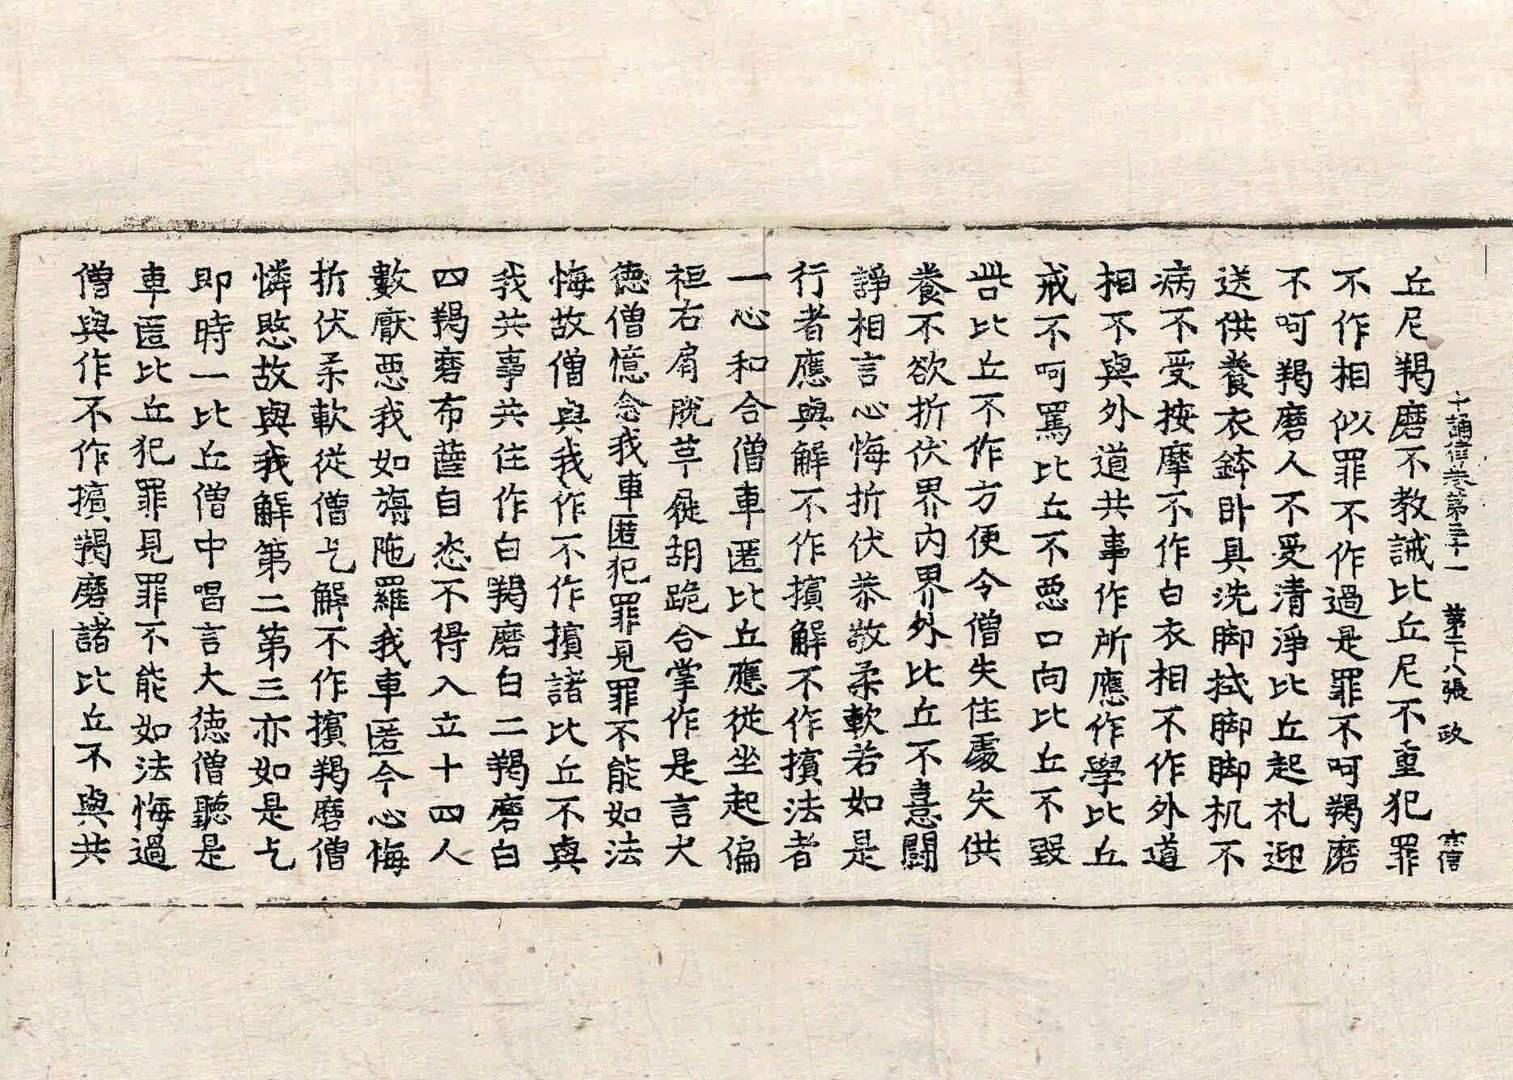 十誦律卷第三十一 第二十八張 政
丘尼羯磨不教誡比丘尼不重犯罪
不作相似罪不作過是罪不呵羯磨
不呵羯磨人不受清淨比丘起礼迎
送供養衣鉢卧具洗脚拭脚脚机不
病不受按摩不作白衣相不作外道
相不與外道共事作所應作學比丘
戒不呵罵比丘不惡口向比丘不毀
呰比丘不作方便令僧失住處失供
養不欲折伏界內界外比丘不憙鬪
諍相言心悔折伏恭敬柔軟若如是
行者應與解不作擯解不作擯法者
一心和合僧車匿比丘應從坐起偏
袒右肩脫草屣胡跪合掌作是言大
德僧憶念我車匿犯罪見罪不能如法
悔故僧與我作不作擯諸比丘不與
我共事共住作白羯磨白二羯磨白
四羯磨布薩自恣不得入立十四人
數厭惡我如旃陁羅我車匿今心悔
折伏柔軟從僧乞解不作擯羯磨僧
憐愍故與我解第二第三亦如是乞
即時一比丘僧中唱言大德僧聽是
車匿比丘犯罪見罪不能如法悔過
僧與作不作擯羯磨諸比丘不與共